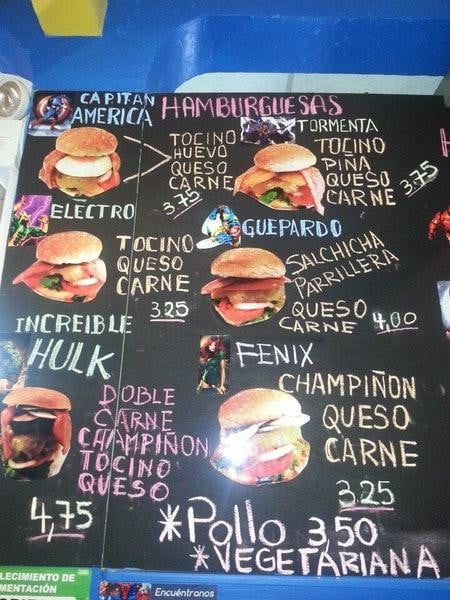 HAMBURGUESAS
CAPITAN
AMERICA
TOCINO
HUEVO
QUESO
CARNE
3.75
TORMENTA
TOCINO
PIÑA
QUESO
CARNE
3.75
ELECTRO
TOCINO
QUESO
CARNE
3.25
GUEPARDO
SALCHICHA
PARRILLERA
QUESO
CARNE
4,00
INCREIBLE
HULK
DOBLE
CARNE
CHAMPIÑON
TOCINO
QUESO
4,75
FENIX
CHAMPIÑON
QUESO
CARNE
3.25
*Pollo 3,50
*VEGETARIANA
LECIMIENTO DE
MENTACIÓN
Encuéntranos